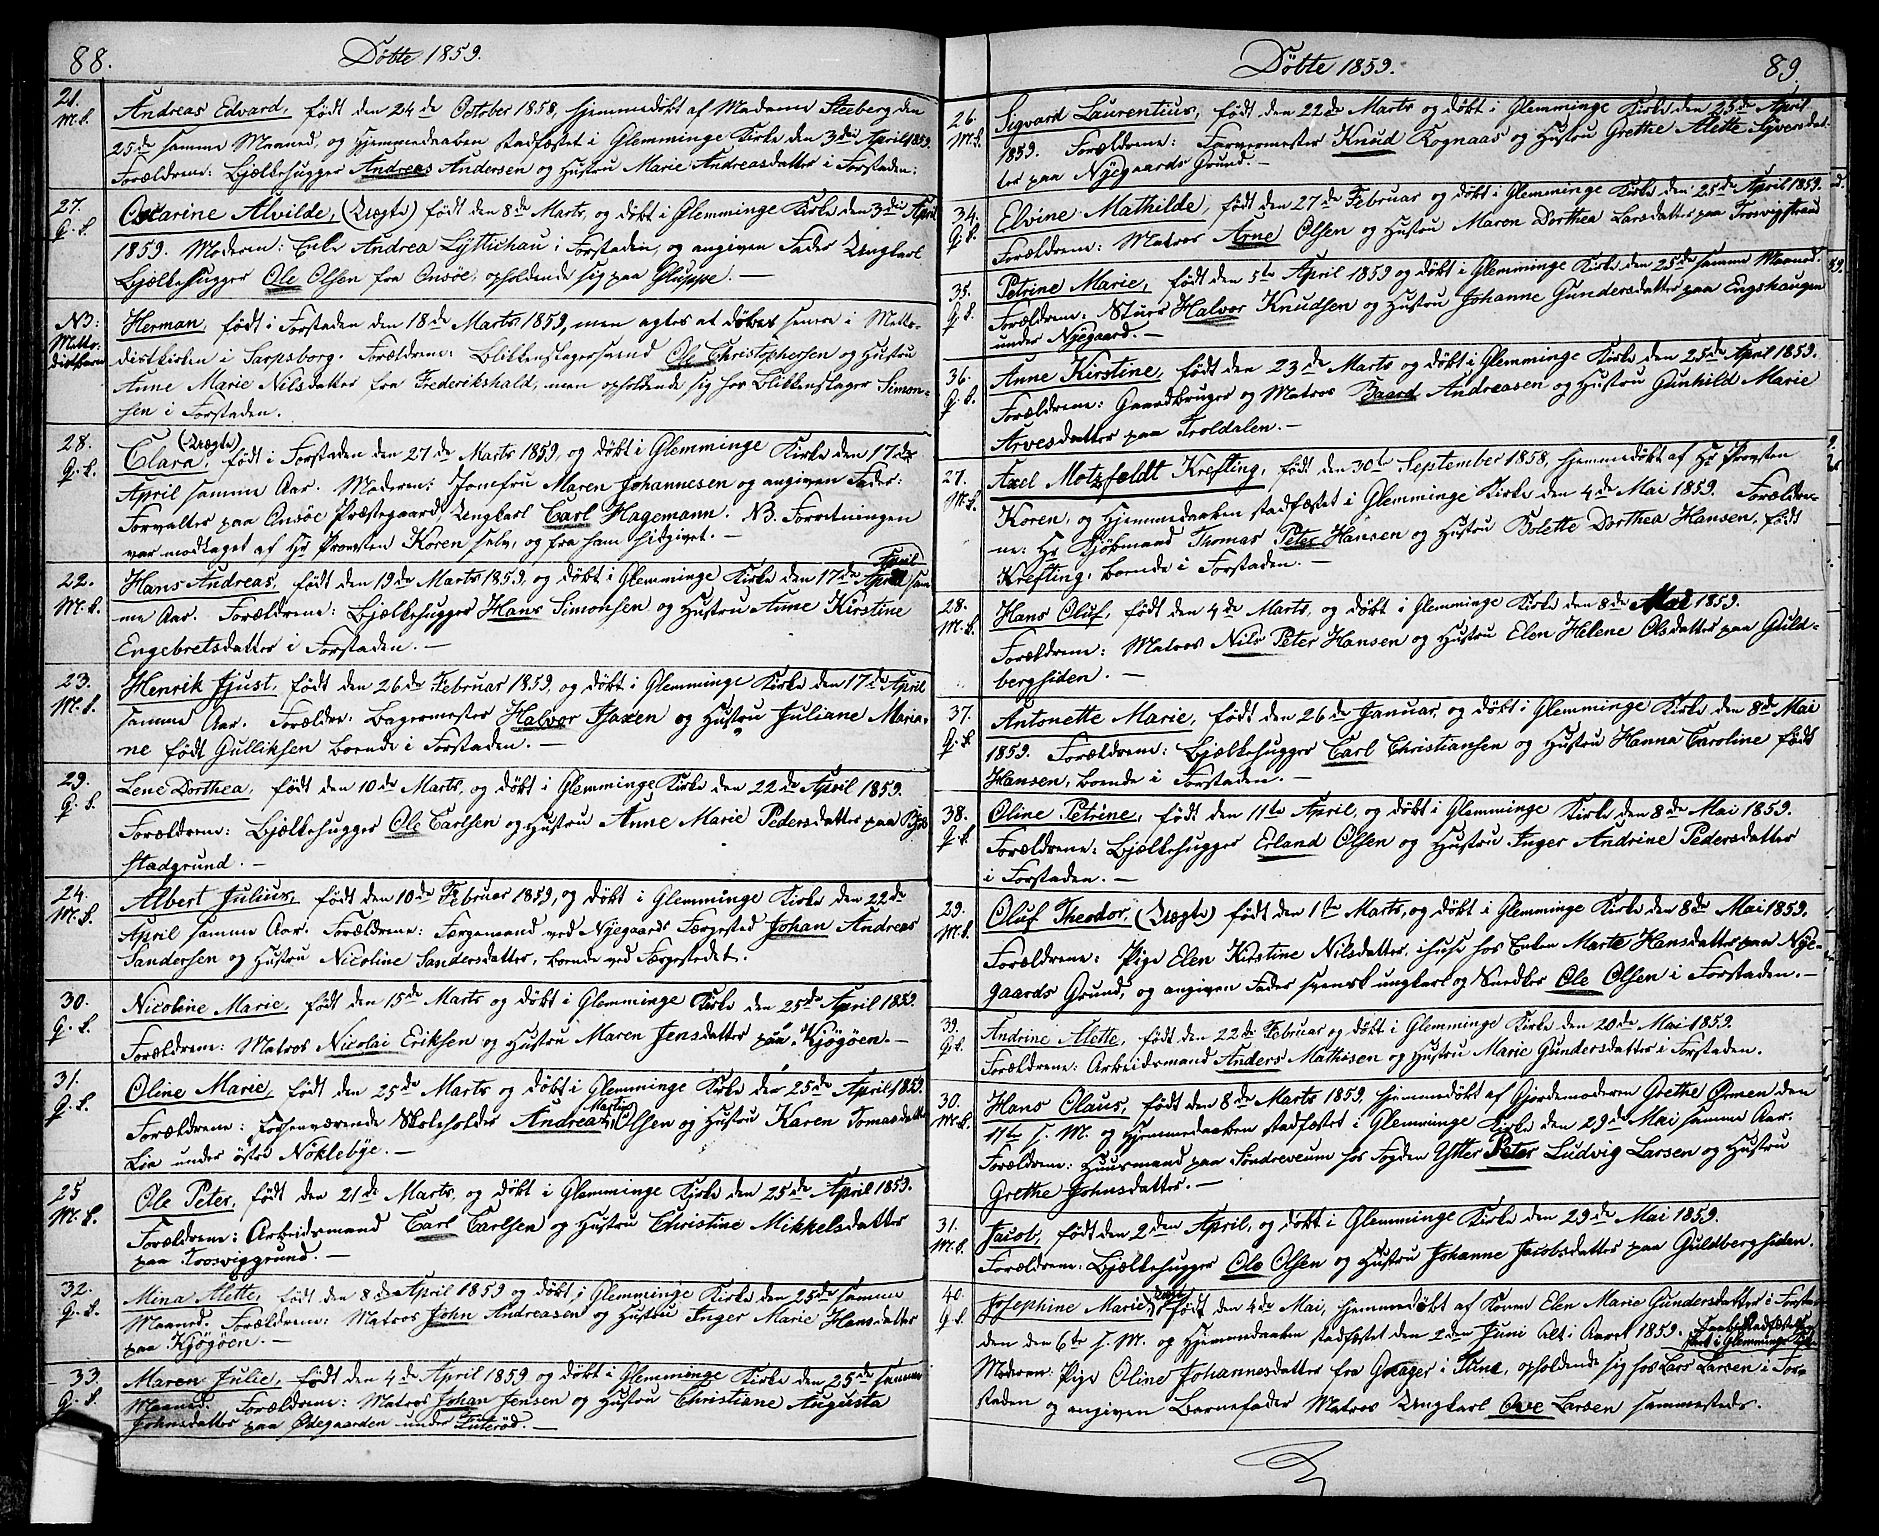 88.
Döbte 1859.
21. Andreas Edvard, født den 24de October 1858, hjemmedøbt af Madame Steeberg den
M.S. 25de samme Maaned, og Hjemmedaaben stadfæstet i Glemminge Kirke den 3die April 1859.
Forældrene: Bjelkehugger Andreas Andersen og Hustru Marie Andreasdatter i Forstaden.
27. Ovarine Alvilde, (Uægte) født den 8de Marts, og døbt i Glemminge Kirke den 3die April
Q.S. 1859. Moderen: Enke Andrea Lyttichau i Forstaden, og angiven Fader Ungkarl
Bjelkehugger Ole Olsen fra Onsøe, opholdende sig paa Gluppe. —
NB: Herman, født i Forstaden den 18de Marts 1859, men agtes at døbes senere i Metho-
Metho-
distbarn distkirken i Sarpsborg. Forældrene: Blikkenslagersvend Ole Christophersen og Hustru
Anne Marie Nilsdatter fra Frederikshald, men opholdende sig hos Blikkenslager Simon-
sen i Forstaden.
28. Clara, (Uægte) født i Forstaden den 27de Marts 1859, og døbt i Glemminge Kirke den 17de
Q.S. April samme Aar. Moderen: Jomfru Maren Johannesen og angiven Fader:
Forvalter paa Onsøe Præstegaard Ungkarl Carl Hagemann. NB. Forretningen
var modtaget af Hr Provsten Koren selv, og fra ham hidgivet. —
22. Hans Andreas, født den 19de Marts 1859, og døbt i Glemminge Kirke den 17de April sam-
M.S. me Aar. Forældrene: Bjelkehugger Hans Simonsen og Hustru Anne Kirstine
Engebretsdatter i Forstaden. —
23. Henrik Just, født den 26de Februar 1859, og døbt i Glemminge Kirke den 17de April
M.S. samme Aar. Forældre: Bagermester Halvor Isaxen og Hustru Juliane Maria-
ne født Gulliksen boende i Forstaden. —
29. Lene Dorthea, født den 10de Marts, og døbt i Glemminge Kirke den 22de April 1859.
Q.S. Forældrene: Bjelkehugger Ole Carlsen og Hustru Anne Marie Pedersdatter paa
stadgrund. —
24. Albert Julius, født den 10de Februar 1859, og døbt i Glemminge Kirke den 22de
M.S. April samme Aar. Forældrene: Færgemand ved Nyegaards Færgested Johan Andreas
Sandersen og Hustru Nicoline Sandersdatter, boende ved Færgestedet.
30. Nicoline Marie, født den 15de Marts og døbt i Glemminge Kirke den 25de April 1859.
Q.S. Forældrene: Matros Nicolai Eriksen og Hustru Maren Jensdatter paa Kjøgøen. —
31. Oline Marie, født den 25de Marts og døbt i Glemminge Kirke den 25de April 1859.
Q.S. Forældrene: Forhenværende Skoleholder Andreas Martin Olsen og Hustru Karen Tomasdatter
Lia under østre Nøklebye. —
25 Ole Peter, født den 21de Marts, og døbt i Glemminge Kirke den 25de April 1859.
M.S. Forældrene: Arbeidsmand Carl Carlsen og Hustru Christine Mikkelsdatter
paa Trosviggrund. —
32. Mina Alette, født den 8de April 1859 og døbt i Glemminge Kirke den 25de samme
Q.S. Maaned. Forældrene: Matros John Andreasen og Hustru Inger Marie Hansdatter
paa Kjøgøen. —
33. Maren Julie, født den 4de April 1859 og døbt i Glemminge Kirke den 25de samme
Q.S. Maaned. Forældrene: Matros Johan Jensen og Hustru Christiane Augusta
Johnsdatter paa Ødegaarden under Lillerød. —
Döbte 1859.
89.
26. Sigvard Laurentius, født den 22de Marts og døbt i Glemminge Kirke den 25de April
M.S. 1859. Forældrene: Farvermester Knud Rognaas og Hustru Grethe Alette Syversdat-
ter paa Nyegaards Grund. —
34. Elvine Mathilde, født den 27de Februar og døbt i Glemminge Kirke den 25de April 1859.
Q.S. Forældrene: Matros Arne Olsen og Hustru Maren Dorthea Larsdatter paa Trosvigstrand
35. Petrine Marie, født den 5te April 1859 og døbt i Glemminge Kirke den 25de samme Maaned.
Q.S. Forældrene: Stuer Halvor Knudsen og Hustru Johanne Gundersdatter paa Engshaugen
under Nyegaard. —
36. Anne Kirstine, født den 23de Marts og døbt i Glemminge Kirke den 25de April 1859.
Q.S. Forældrene: Gaardbruger og Matros Baard Andreasen og Hustru Gunhild Marie
Arvesdatter paa Troldalen. —
27. Axel Motzfeldt Krefting, født den 30te September 1858, hjemmedøbt af Hr Provsten
M.S. Koren, og Hjemmedaaben stadfæstet i Glemminge Kirke den 4de Mai 1859. Forældre-
ne: Hr Kjøbmand Thomas Peter Hansen og Hustru Bolette Dorthea Hansen, født
Krefting, boende i Forstaden. —
28. Hans Oluf, født den 4de Marts, og døbt i Glemminge Kirke den 8de Mai 1859.
M.S. Forældrene: Matros Nils Peter Hansen og Hustru Elen Helene Olsdatter paa Guld-
bergsiden. —
37. Antonette Marie, født den 26de Januar, og døbt i Glemminge Kirke den 8de Mai
Q.S 1859. Forældrene: Bjelkehugger Carl Christiansen og Hustru Hanna Caroline født
Hansen, boende i Forstaden. —
38. Oline Petrine, født den 11te April, og døbt i Glemminge Kirke den 8de Mai 1859.
Q.S. Forældrene: Bjelkehugger Erland Olsen og Hustru Inger Andrine Pedersdatter
i Forstaden. —
29. Oluf Theodor, (Uægte) født den 1ste Marts, og døbt i Glemminge Kirke den 8de Mai 1859.
M.S. Forældrene: Pige Elen Kirstine Nilsdatter, i huse hos Enken Marte Hansdatter paa Nye-
gaards Grund, og angiven Fader svensk ungkarl og Snedker Ole Olsen i Forstaden. —
39. Andrine Alette, født den 22de Februar og døbt i Glemminge Kirke den 20de Mai 1859.
Q.S. Forældrene: Arbeidsmand Anders Mathisen og Hustru Marie Gundersdatter i Forstaden.
30. Hans Claus, født den 8de Marts 1859. hjemmedøbt af Gjordemoderen Grethe Ormen den
M.S. 11te s. M. og Hjemmedaaben stadfæstet i Glemminge Kirke den 29de Mai samme Aar.
Forældrene: Huusmand paa Søndreveum hos Fogden Ytter Peter Ludvig Larsen og Hustru
Grethe Johnsdatter. —
31. Jacob, født den 2den April, og døbt i Glemminge Kirke den 29de Mai 1859.
M.S. Forældrene: Bjelkehugger Ole Olsen og Hustru Johanne Jacobsdatter paa Guldbergsiden.
40. Josephine Marie, født den 4de Mai, hjemmedøbt af Konen Elen Marie Gundersdatter i Forsta-
Q.S. den den 6te s. M. og Hjemmedaaben stadfæstet den 2den Juni Alt i Aaret 1859.
Moderen: Pige Oline Johannesdatter fra Grager i Tune, opholdende sig hos Lars Larsen i For-
staden og angiven Barnefader Matros Ungkarl Ole Larsen sammesteds.